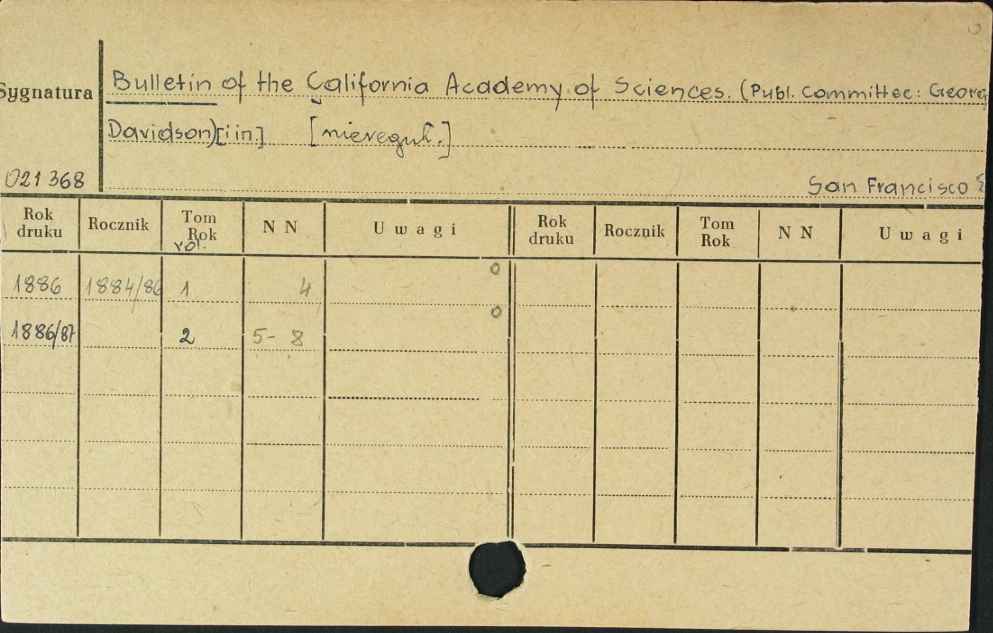 Sygnatura Bulletin of the California Academy of Sciences. (Publ. Committee: Georg
Davidson)[i in] [nieregul.]
021368
San Francisco
Rok druku Rocznik Tom Rok vol. N N Uwagi Rok druku Rocznik Tom Rok N N Uwagi
1886 1884/86 1 4 o
1886/87 2 5- 8 o